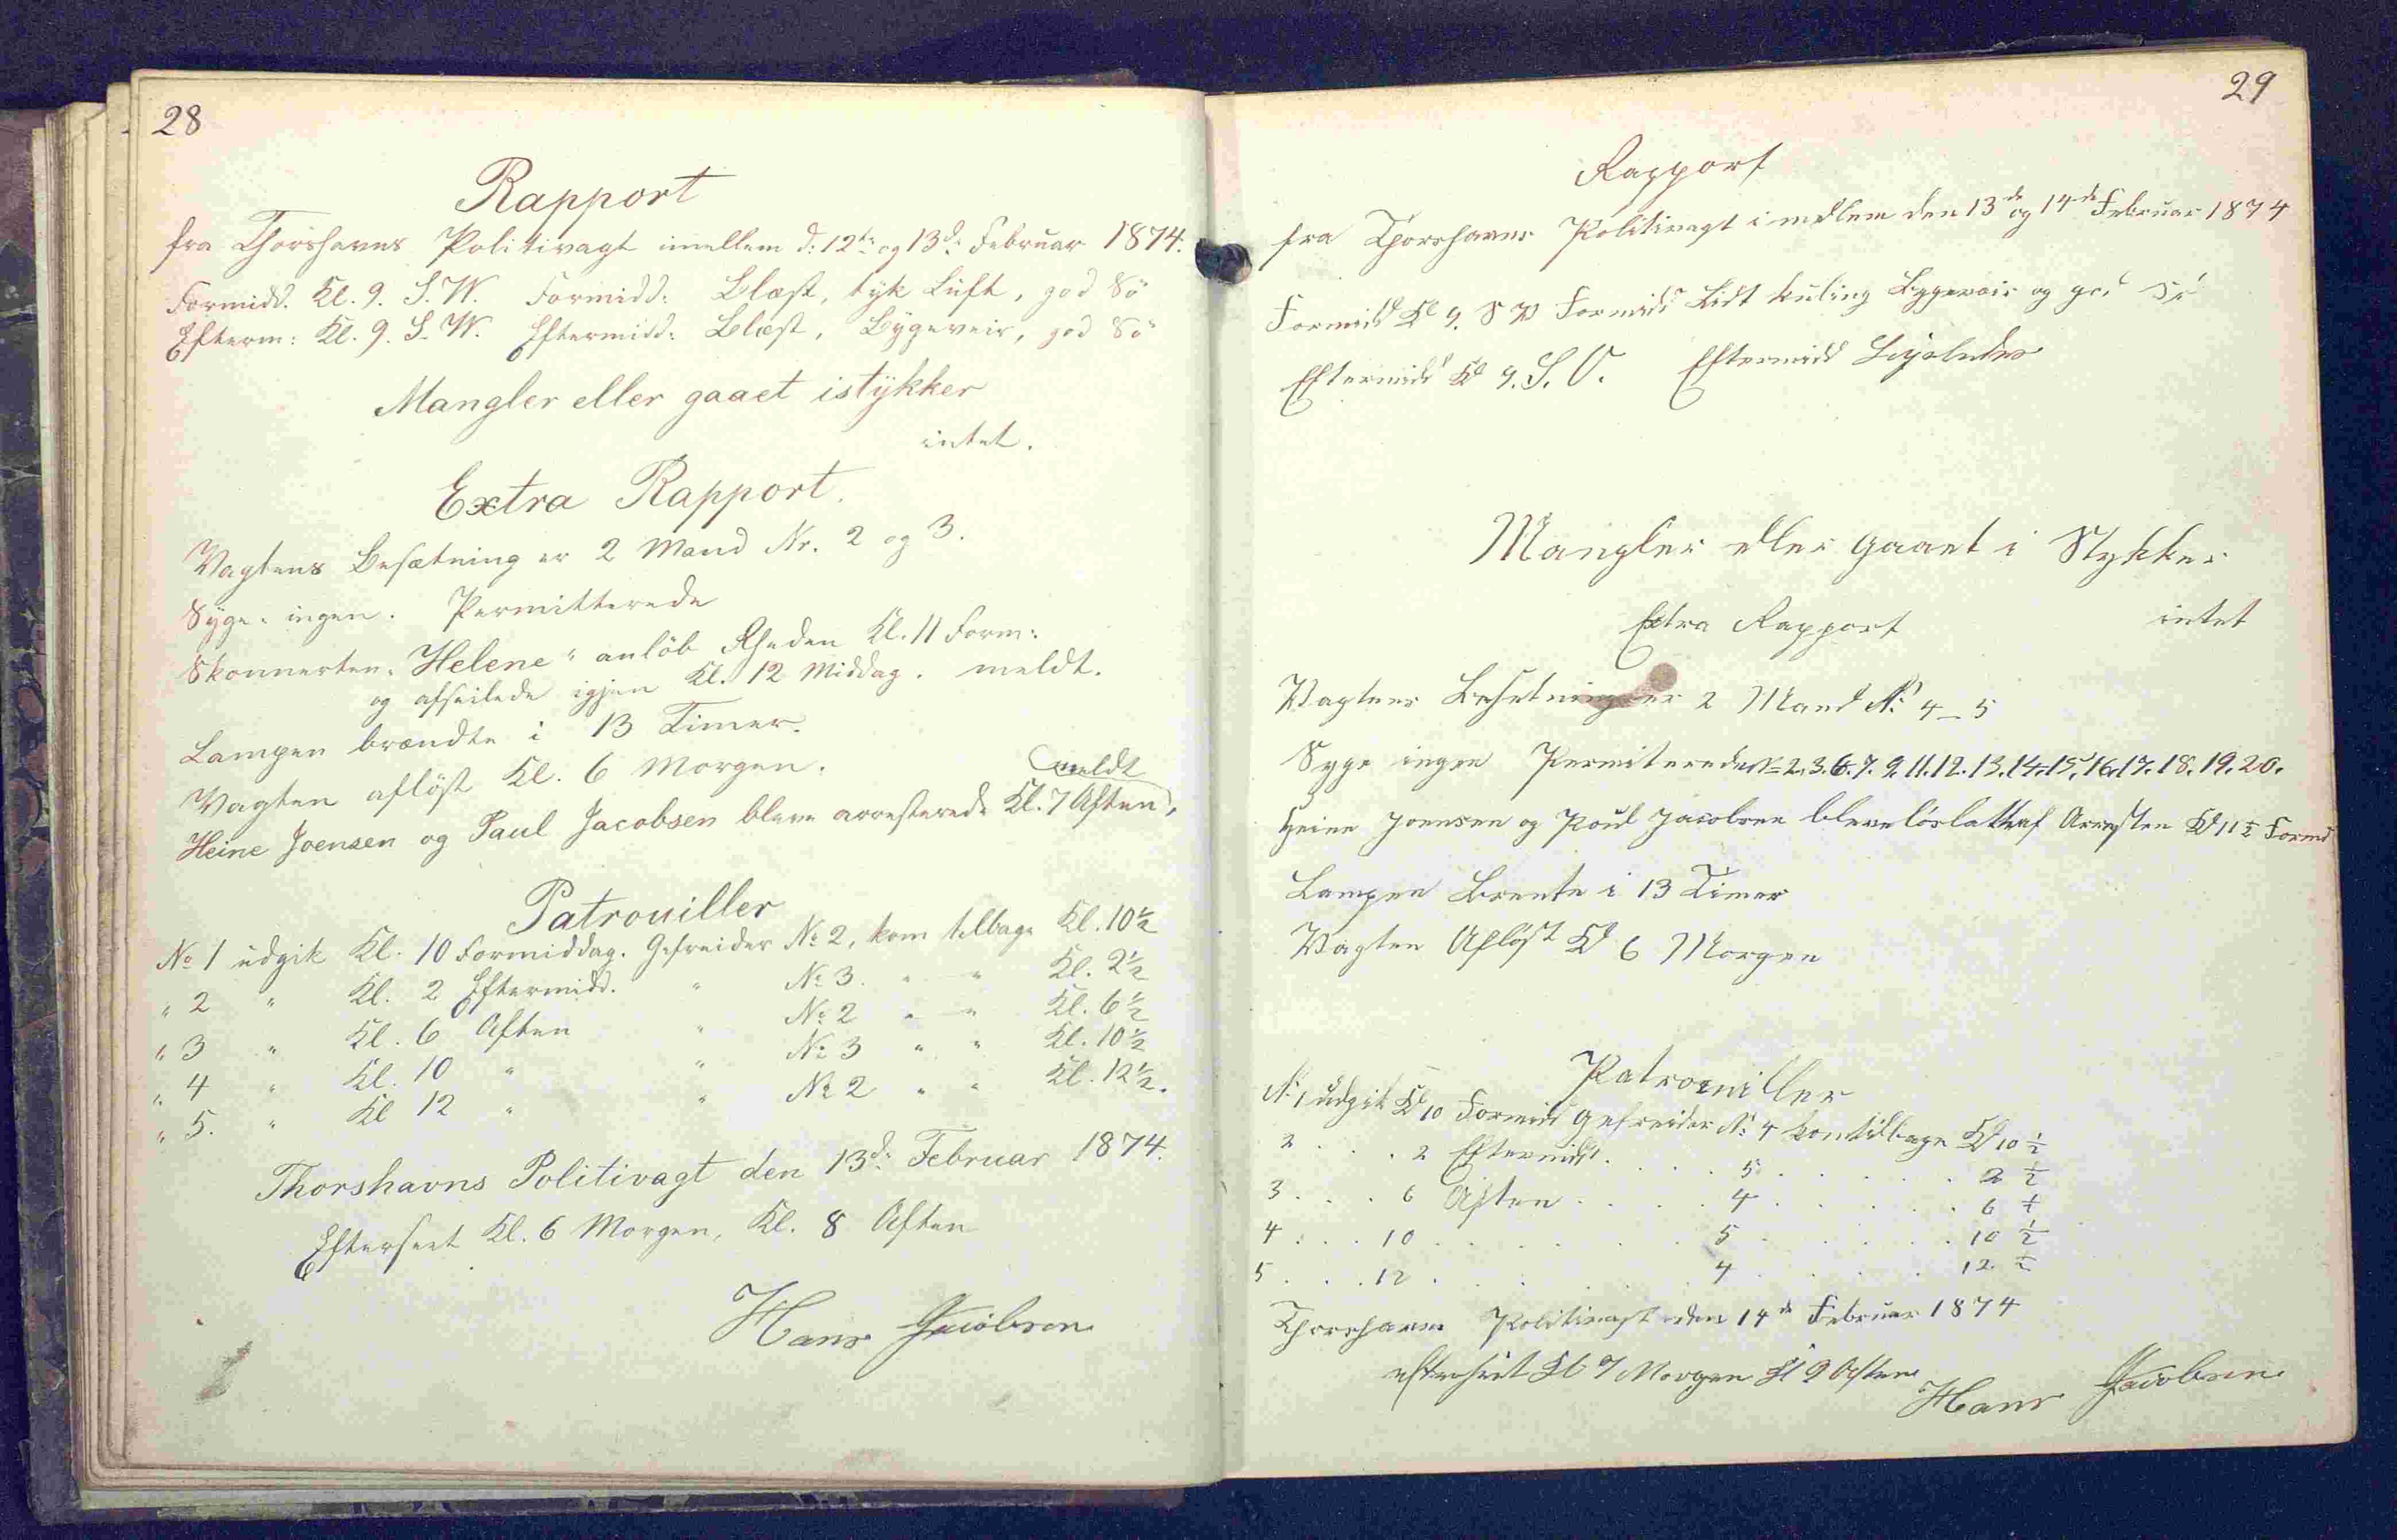 28
Rapport
fra Thorshavns Politivagt imellem d: 12te og 13de Februar 1874.
Formidd. Kl. 9. S.W. Formidd: Blæst, tÿk Luft, god Sö
Efterm: Kl. 9. S.W. Eftermidd: Blæst, Bÿgeveir, god Sö
Mangler eller gaaet istÿkker
intet.
Extra Rapport.
Vagtens Besætning er 2 Mand Nr. 2 og 3.
Sÿge: ingen. Permitterede
Skonnerten "Helene" anlöb Rheden Kl. 11 Form:
og afseilede igjen Kl. 12 Middag. meldt.
Lampen brændte i 13 Timer.
Vagten aflöst Kl. 6 Morgen.
meldt
Heine Joensen og Paul Jacobsen bleve arresterede Kl. 7 Aften,
Patrouiller
No 1 udgik Kl. 10 Formiddag. Gefreider No 2, kom tilbage Kl. 10½
" 2 " Kl. 2 Eftermidd. " No 3. " " Kl. 2½
" 3 " Kl. 6 Aften " No 2 " " Kl. 6½
" 4 " Kl. 10 " " No 3 " " Kl. 10½
" 5. " Kl 12 " " No 2 " " Kl. 12½.
Thorshavns Politivagt den 13de Februar 1874.
Efterseet Kl. 6 Morgen, Kl. 8 Aften
Hans Jacobsen
29
Rapport
fra Thorshavns Politivagt imellem den 13de og 14de Februar 1874
Formidd Kl 9. S W Formidd Lidt kuling Bygeveir og god Sö
Eftermidd Kl 9. S. O. Eftermidd
Mangler eller gaaet i Stykker
Extra Rapport intet
Vagtens Besetning er 2 Mand No 4 - 5
Syge ingen Permiterede No 2. 3. 6. 7. 9. 11. 12. 13. 14. 15. 16. 17. 18. 19. 20.
Heine Joensen og Poul Jacobsen bleve löslatt af Arresten Kl 11½ Formd
Lampen Brente i 13 Timer
Vagten Aflöst Kl 6 Morgen
Patrouiller
No 1 udgik Kl 10 Formidd Gefreider No 4 kom tilbage Kl 10 ½
2 . . . 2 Eftermidd . . . . 5 . . . . . 2 ½
3 . . . 6 Aften . . . . 4 . . . . . 6 ½
4 . . . 10 . . . . . 5 . . . . . 10 ½
5 . . . 12 . . . . . 4 . . . . . 12 ½
Thorshavn Politivagt den 14de Februar 1874
efterseet Kl 7 Morgen Kl 9 Aften
Hans Jacobsen